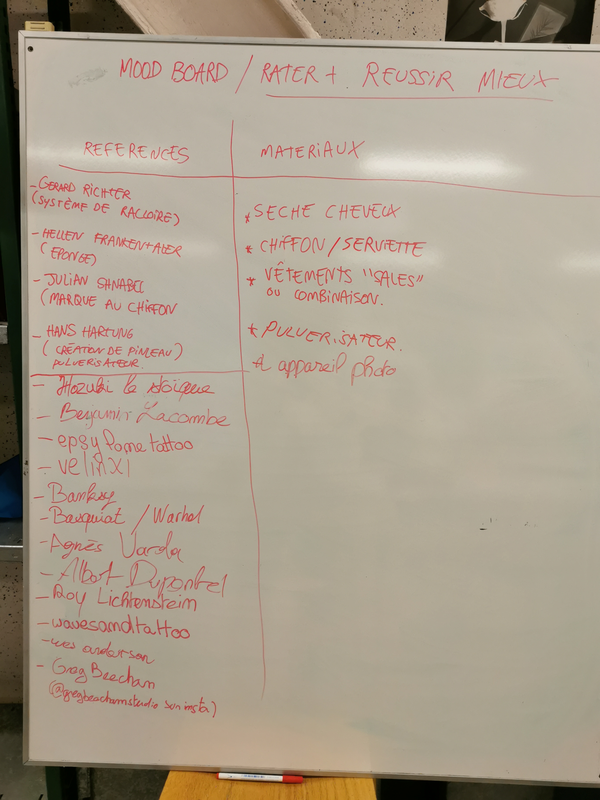 MOOD BOARD / RATER + REUSSIR MIEUX
REFERENCES
- GERARD RICHTER
(SYSTÈME DE RACLOIRE)
- HELLEN FRANKENTALER
(EPONGE)
- JULIAN SHNABEL
(MARQUE AU CHIFFON)
- HANS HARTUNG
(CRÉATION DE PINCEAU)
PULVERISATEUR.
- Hozuki le stoique
- Benjamin Lacombe
- epsy fame tattoo
- velinxi
- Banksy
- Basquiat / Warhol
- Agnès Varda
- Albert Dupontel
- Roy Lichtenstein
- wavesandtattoo
- wes anderson
- Greg Beecham
(@gregbeachamstudio son insta)
MATERIAUX
* SECHE CHEVEUX
* CHIFFON / SERVIETTE
* VÊTEMENTS "SALES"
OU COMBINAISON.
* PULVERISATEUR.
* appareil photo